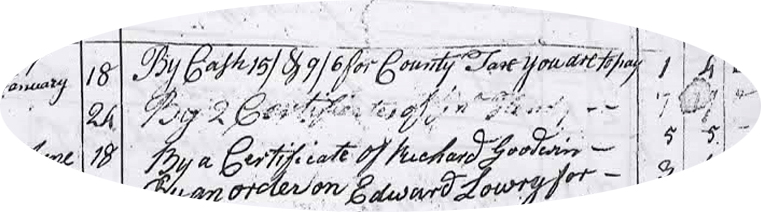 anuary 18 By Cash 15/ & 9/6 for County Tax you are to pay 1 4
24 By 2 Certificates of Jno 7
June 18 By a Certificate of Richard Goodwin — 5 5
By an order on Edward Lowry for — 3